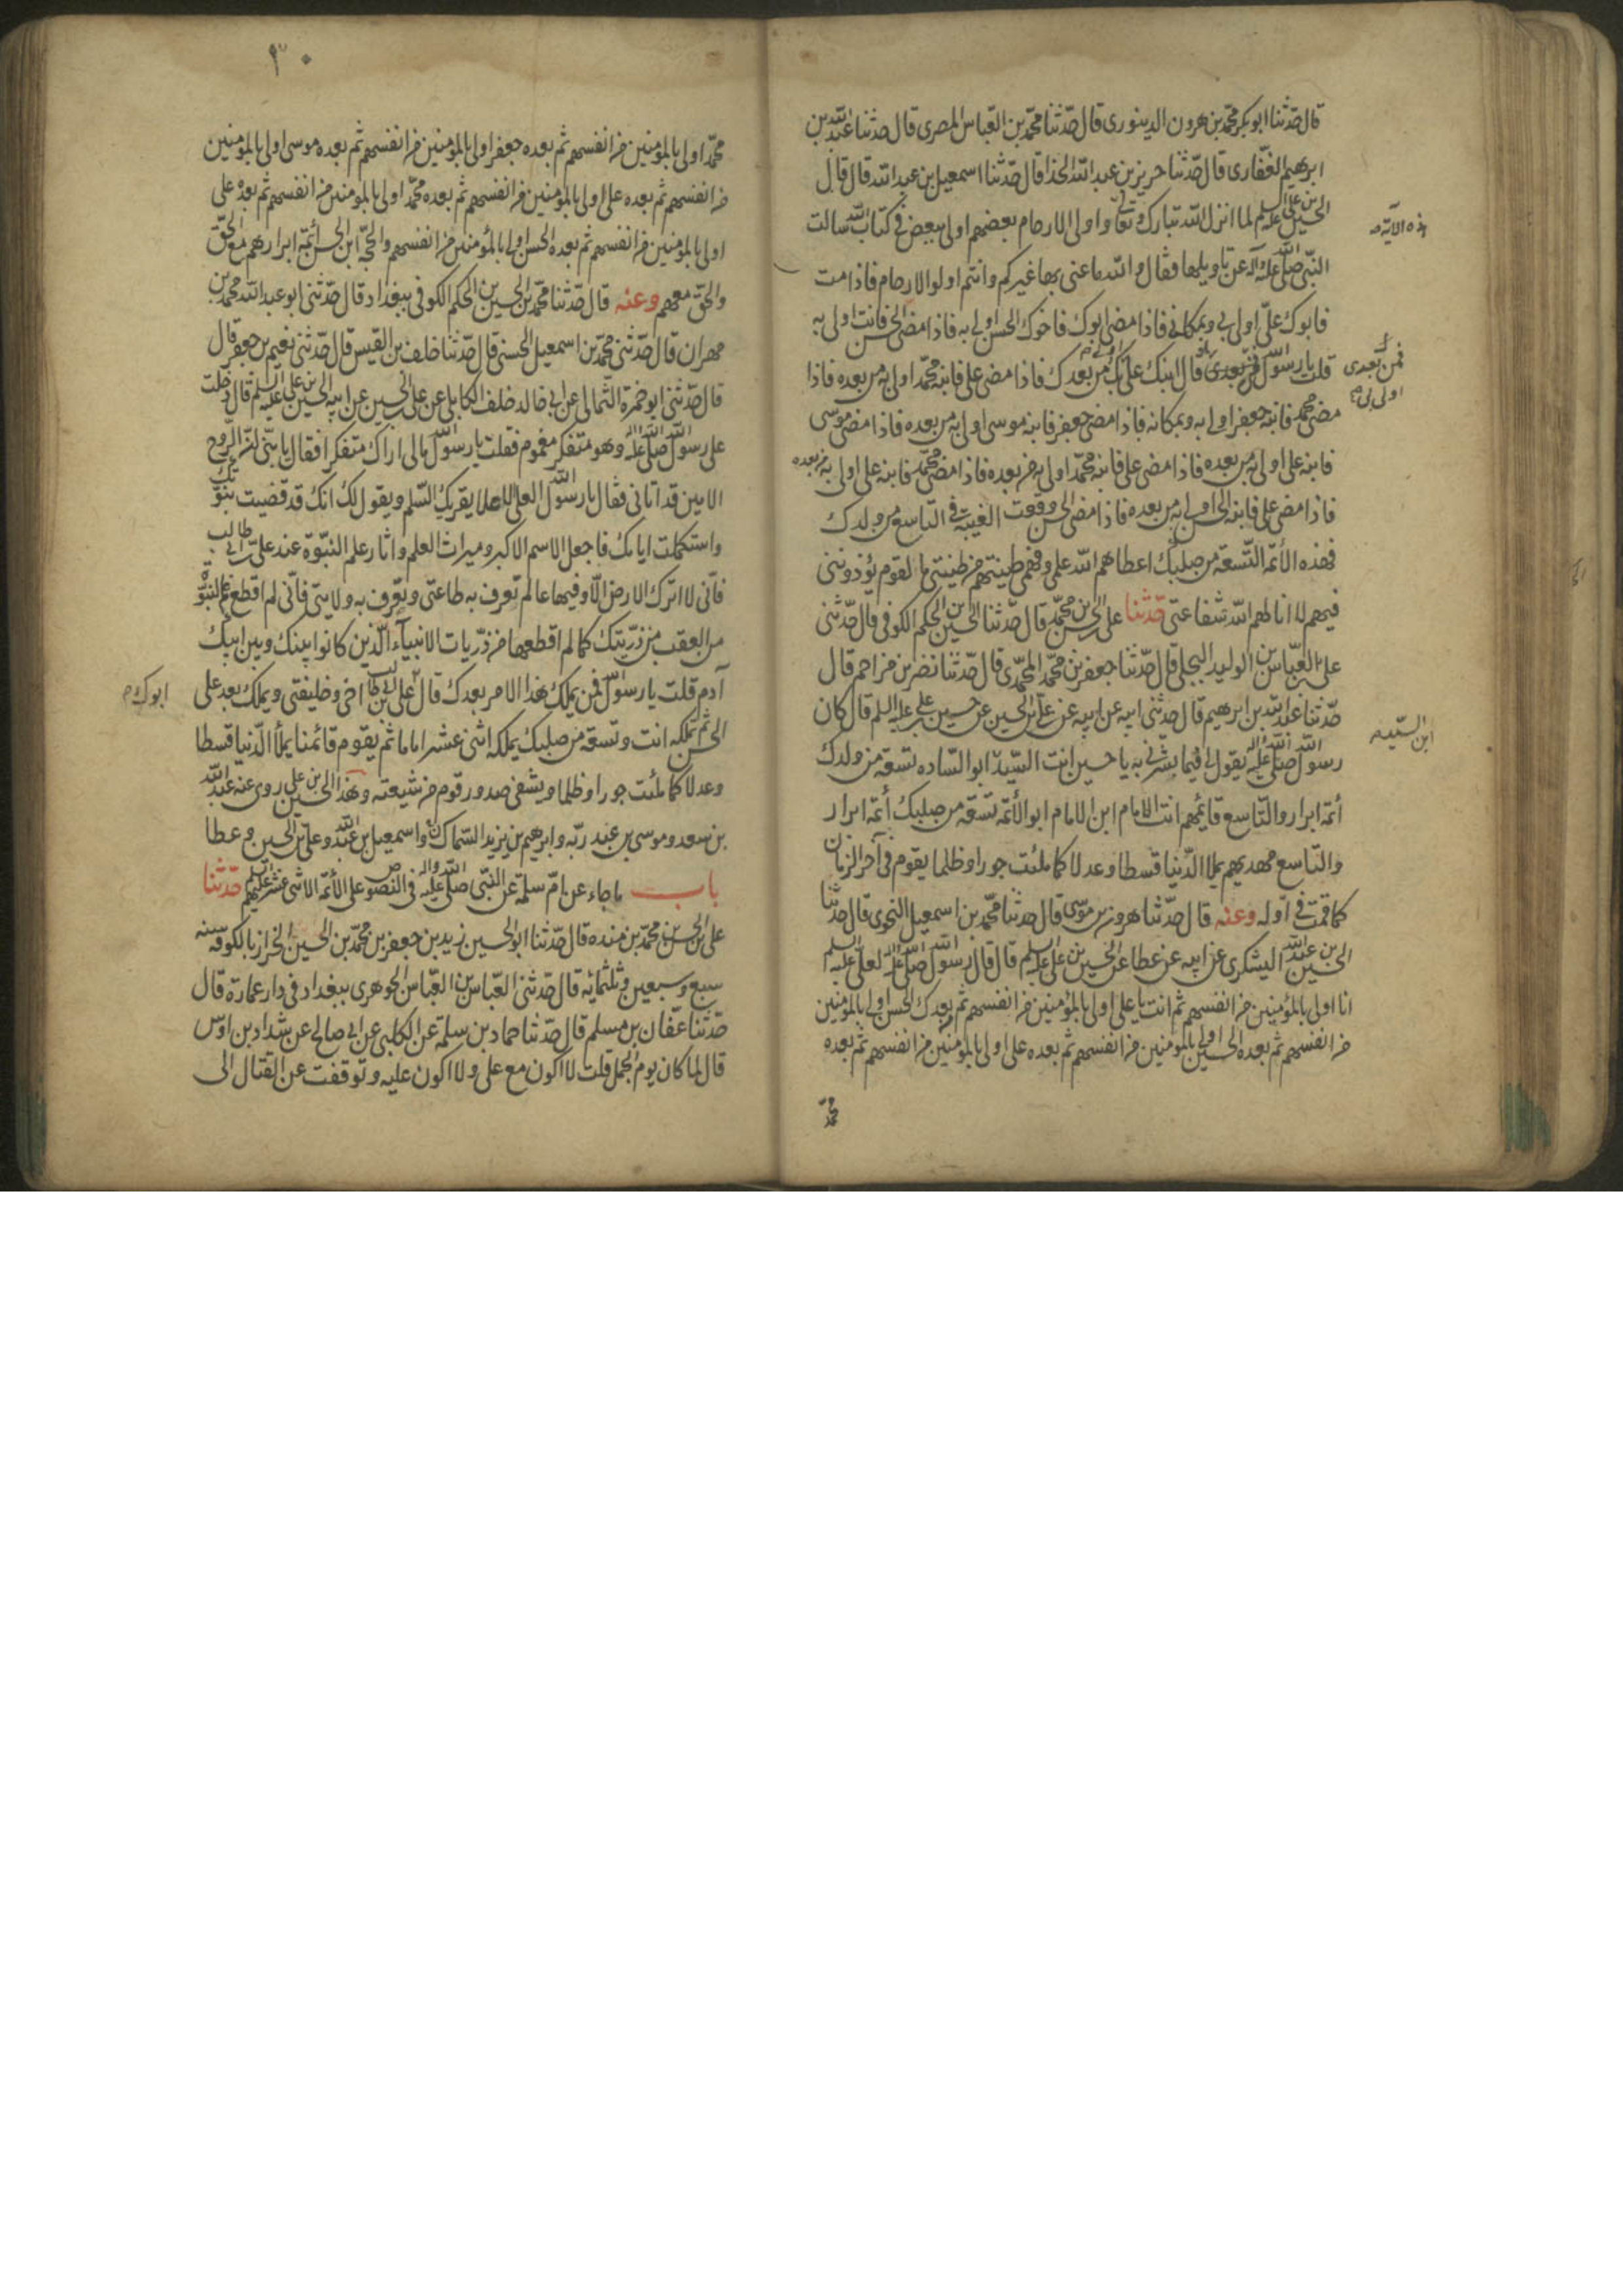 قال حدثنا ابو بكر محمد بن هرون الدينوری قال حدثنا محمد بن العباس المصری قال حدثنا عبد الله بن
ابرهيم الغفاری قال حدثنا حريز بن عبد الله الحذا قال حدثنا اسمعيل بن عبد الله قال قال
الحسين بن علی عليه السلم لما انزل الله تبارك وتعالى واولی الارحام بعضهم اولی ببعض فی كتاب الله سالت
هذه الآية
النبی صلى الله عليه وآله عن تاويلها فقال والله ما عنى بها غيركم وانتم اولوا الارحام فاذا مت
فابوك علی اولی بی وبمكانی فاذا مضى ابوك فاخوك الحسن اولی به فاذا مضى الحسن فانت اولی به
قلت يا رسول الله فمن بعدی قال ابنك علی اولى بك من بعدك فاذا مضى علی فابنه محمد اولی به من بعده فاذا
فمن بعدی
اولی بی
مضى محمد فابنه جعفر اولی به وبمكانه فاذا مضى جعفر فابنه موسى اولی به من بعده فاذا مضى موسى
فابنه علی اولی به من بعده فاذا مضى علی فابنه محمد اولی به من بعده فاذا مضى محمد فابنه علی اولی به من بعده
فاذا مضى علی فابنه الحسن اولی به من بعده فاذا مضى الحسن وقعت الغيبة فی التاسع من ولدك
فهذه الأئمة التسعة من صلبك اعطاهم الله علمی وفهمی طينتهم من طينتی ما لقوم يؤذوننی
فيهم لا انالهم الله شفاعتی حدثنا علی بن الحسن بن محمد قال حدثنا الحسين بن الحكم الكوفی قال حدثنی
علی بن العباس بن الوليد البجلی قال حدثنا جعفر بن محمد المحمدی قال حدثنا نصر بن مزاحم قال
حدثنا عبد الله بن ابرهيم قال حدثنی ابيه عن ابيه عن علی بن الحسين عن حسين بن علی عليه السلم قال كان
رسول الله صلى الله عليه واله يقول لی فيما بشرنی به يا حسين انت السيد ابو الساده تسعة من ولدك
ابن السيد
أئمة ابرار والتاسع قايمهم انت الامام ابن الامام ابو الأئمة تسعة من صلبك أئمة ابرار
والتاسع مهديهم يملا الدنيا قسطا وعدلا كما ملئت جورا وظلما يقوم فی آخر الزمان
كما قمت فی اوله وعنه قال حدثنا هرون بن موسى قال حدثنا محمد بن اسمعيل النحوی قال حدثنا
الحسين بن عبد الله اليشكری عن ابيه عن عطا عن الحسين بن علی عليه السلم قال قال رسول الله صلى الله عليه واله لعلی عليه السلم
انا اولی بالمؤمنين من انفسهم ثم انت يا علی اولی بالمؤمنين من انفسهم ثم بعدك الحسن اولی بالمؤمنين
من انفسهم ثم بعده الحسين اولی بالمؤمنين من انفسهم ثم بعده علی اولی بالمؤمنين من انفسهم ثم بعده
محمد
محمد اولی بالمؤمنين من انفسهم ثم بعده جعفر اولی بالمؤمنين من انفسهم ثم بعده موسى اولی بالمؤمنين
من انفسهم ثم بعده علی اولی بالمؤمنين من انفسهم ثم بعده محمد اولی بالمؤمنين من انفسهم ثم بعده علی
اولی بالمؤمنين من انفسهم ثم بعده الحسن اولی بالمؤمنين من انفسهم والحجة ابن الحسن أئمة ابرار هم مع الحق
والحق معهم وعنه قال حدثنا محمد بن الحسين بن الحكم الكوفی ببغداد قال حدثنی ابو عبد الله محمد بن
مهران قال حدثنی محمد بن اسمعيل الحسنی قال حدثنا خلف بن القيس قال حدثنی نعيم بن جعفر قال
قال حدثنی ابو حمزة الثمالی عن ابی خالد خلف الكابلی عن علی بن الحسين عن ابيه الحسين بن علی عليه السلم قال دخلت
على رسول الله صلى الله عليه واله وهو متفكر مغموم فقلت يا رسول الله مالی اراك متفكرا فقال يا بنی ان الروح
الامين قد اتانی فقال يا رسول الله العلی الاعلا يقريك السلم ويقول لك انك قد قضيت نبوتك
واستكملت ايامك فاجعل الاسم الاكبر وميراث العلم واثار علم النبوة عند علی بن ابی طالب
فانی لا اترك الارض الا وفيها عالم تعرف به طاعتی وتعرف به ولايتی فانی لم اقطع علم النبوة
من العقب من ذريتك كما لم اقطعها من ذريات الانبياء الذين كانوا بينك وبين ابيك
آدم قلت يا رسول الله فمن يملك هذا الامر بعدك قال علی بن ابی طالب اخی وخليفتی ويملك بعد علی
ابوك
الحسن ثم تملكه انت وتسعة من صلبك يملكه اثنی عشر اماما ثم يقوم قائمنا يملأ الدنيا قسطا
وعدلا كما ملئت جورا وظلما ويشفی صدور قوم من شيعته وهذا الحسين بن علی روى عنه عبد الله
بن سعد وموسى بن عبد ربه وابرهيم بن يزيد السماك واسمعيل بن عبد الله وعلی بن الحسين وعطا
باب ما جاء عن ام سلمة عن النبی صلى الله عليه واله فی النصوص على الأئمة الاثنی عشر عليهم السلم حدثنا
علی بن الحسن بن محمد بن منده قال حدثنا ابو الحسين زيد بن جعفر بن محمد بن الحسين الخزاز بالكوفة سنه
سبع وسبعين وثلثمائه قال حدثنی العباس بن العباس الجوهری ببغداد فی دار عمارة قال
حدثنا عفان بن مسلم قال حدثنا حماد بن سلمة عن الكلبی عن ابی صالح عن شداد بن اوس
قال لما كان يوم الجمل قلت لا اكون مع علی ولا اكون عليه وتوقفت عن القتال الى